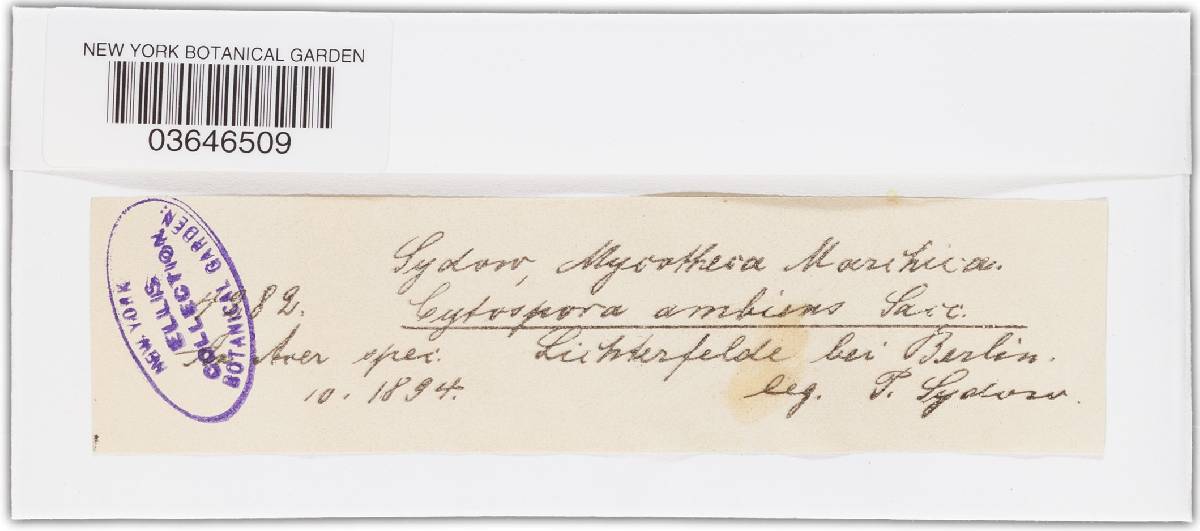 NEW YORK BOTANICAL GARDEN
03646509
NEW YORK BOTANICAL GARDEN.
ELLIS COLLECTION
Sydow, Mycotheca Marchica.
4282. Cytospora ambiens Sacc.
Acer spec. Lichterfelde bei Berlin.
10. 1894. leg. P. Sydow.